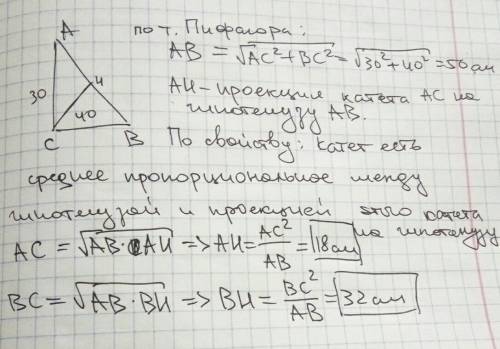 A
по т. Пифагора:
AB = √AC²+BC² = √30²+40² = 50см
30
H
40
C
B
AH – проекция катета AC на
гипотенузу AB.
По свойству: катет есть
среднее пропорциональное между
гипотенузой и проекцией этого катета
на гипотенузу
AC = √AB·AH => AH = AC²/AB = 18см
BC = √AB·BH => BH = BC²/AB = 32см